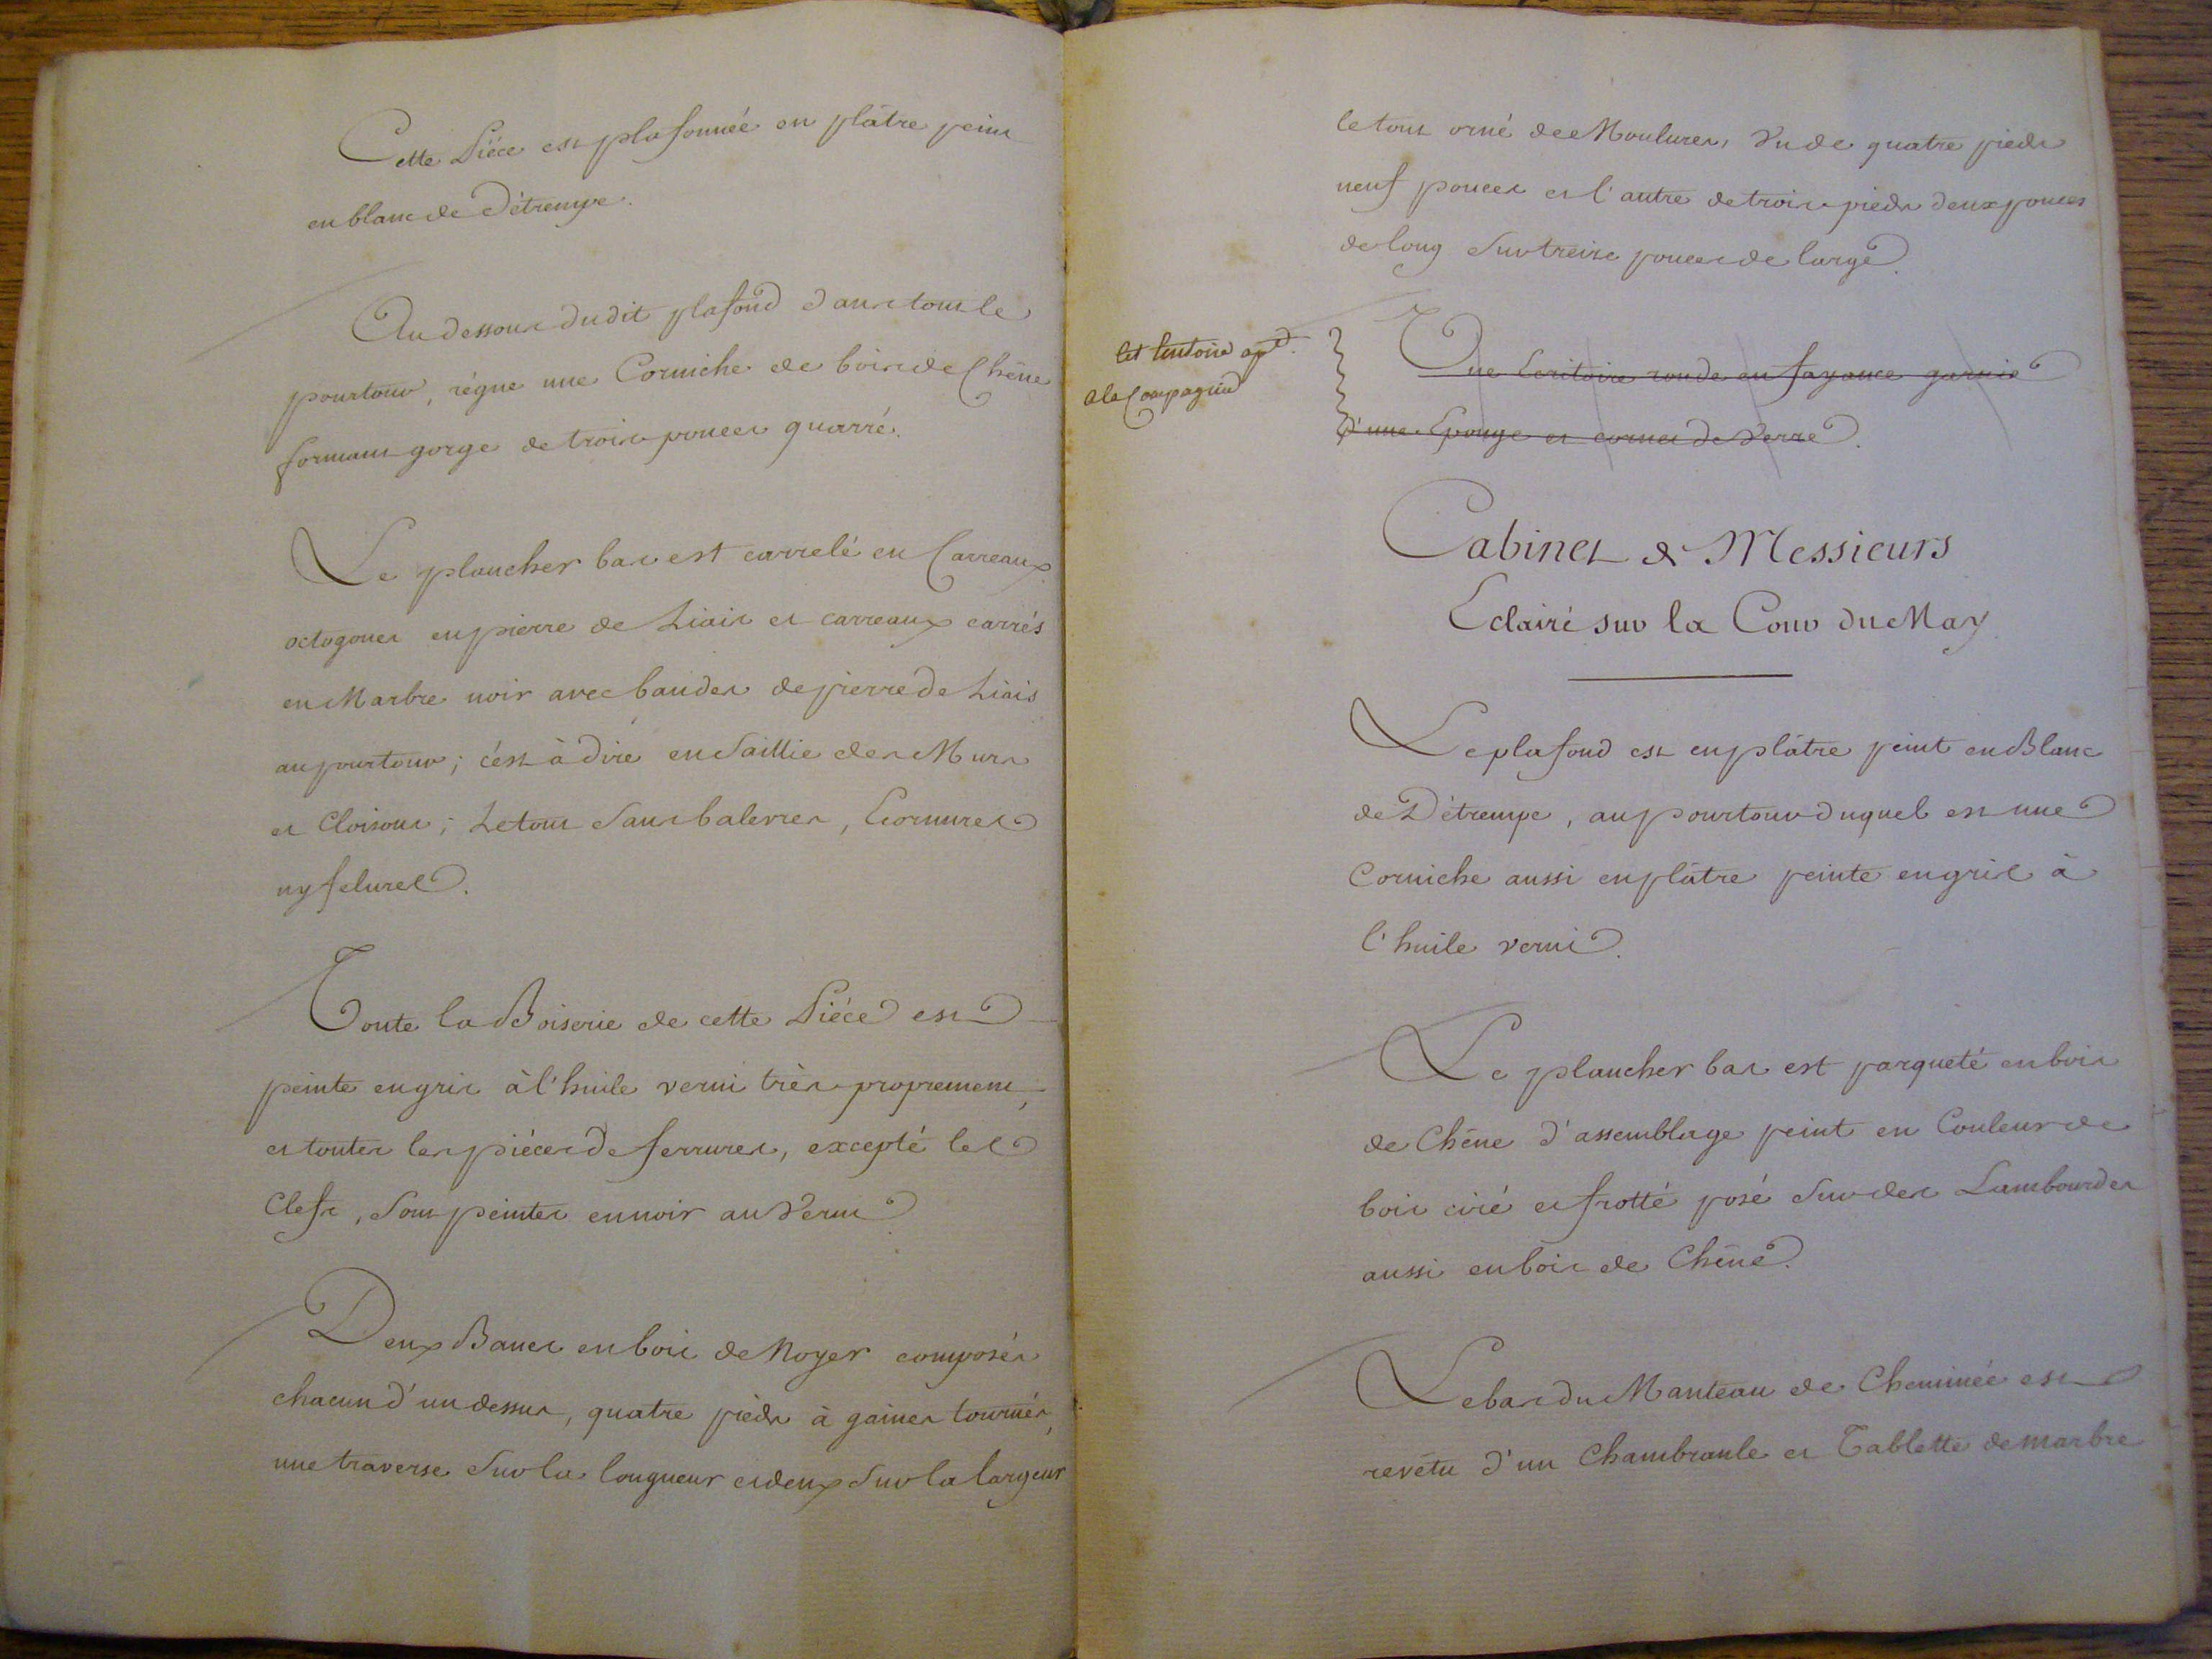 Cette Piéce est plafonnée en plâtre peint
en blanc de Détrempe.
Au dessous dudit plafond dans tout le
pourtour, régne une Corniche de bois de Chêne
formant gorge de trois pouces quarré.
Le plancher bas est carrelé en Carreaux
octogones en pierre de Liais et carreaux carrés
en Marbre noir avec bandes de pierre de Liais
au pourtour; c'ést à dire en Saillie des Murs
et Cloisons; Le tout Sans balevres, Ecornures
ny felures.
Toute la Boiserie de cette Piéce est
peinte en gris à l'huile verni très proprement,
et toutes les piéces de ferrures, excepté les
Clefs, Sont peintes en noir au Verni.
Deux Bancs en bois de Noyer composés
chacun d'un dessus, quatre pieds à gaines tournés,
une traverse Sur la longueur et deux Sur la largeur
le tout orné de Moulures, Un de quatre pieds
neuf pouces et l'autre de trois pieds deux pouces
de long Sur treize pouces de large.
Une Ecritoire ronde en fayance garnie
d'une Eponge et cornet de Verre.
Cet Ecritoire apt.
a la Compagnie
Cabinet de Messieurs
Eclairé sur la Cour du May
Le plafond est en plâtre peint en Blanc
de Détrempe, au pourtour duquel est une
Corniche aussi en plâtre peinte en gris à
l'huile verni.
Le plancher bas est parqueté en bois
de Chêne d'assemblage peint en Couleur de
bois ciré et frotté posé Sur des Lambourdes
aussi en bois de Chêne.
Le bas du Manteau de Cheminée est
revétu d'un Chambranle et Tablette de marbre